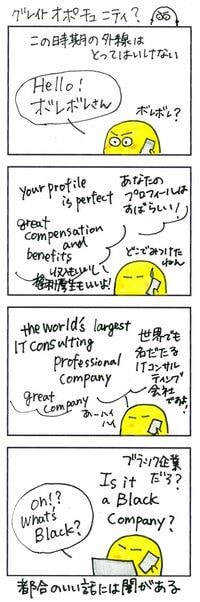 グレイトオポチュニティ?
この時期の外線は
とってはいけない
Hello!
ボレボレさん
ボレボレ?
your profile
is perfect
あなたの
プロフィールは
すばらしい!
great
compensation
and
benefits
収入もいいし
福利厚生もいいよ!
どこでみつけた
ねん
the world's largest
IT consulting
professional
company
世界でも
名だたる
ITコンサル
ティング
会社
ですよ!
great
company
あーハイ
ハイ
ブラック企業
だろ?
Is it
a Black
Company?
Oh!?
What's
Black?
都合のいい話には闇がある